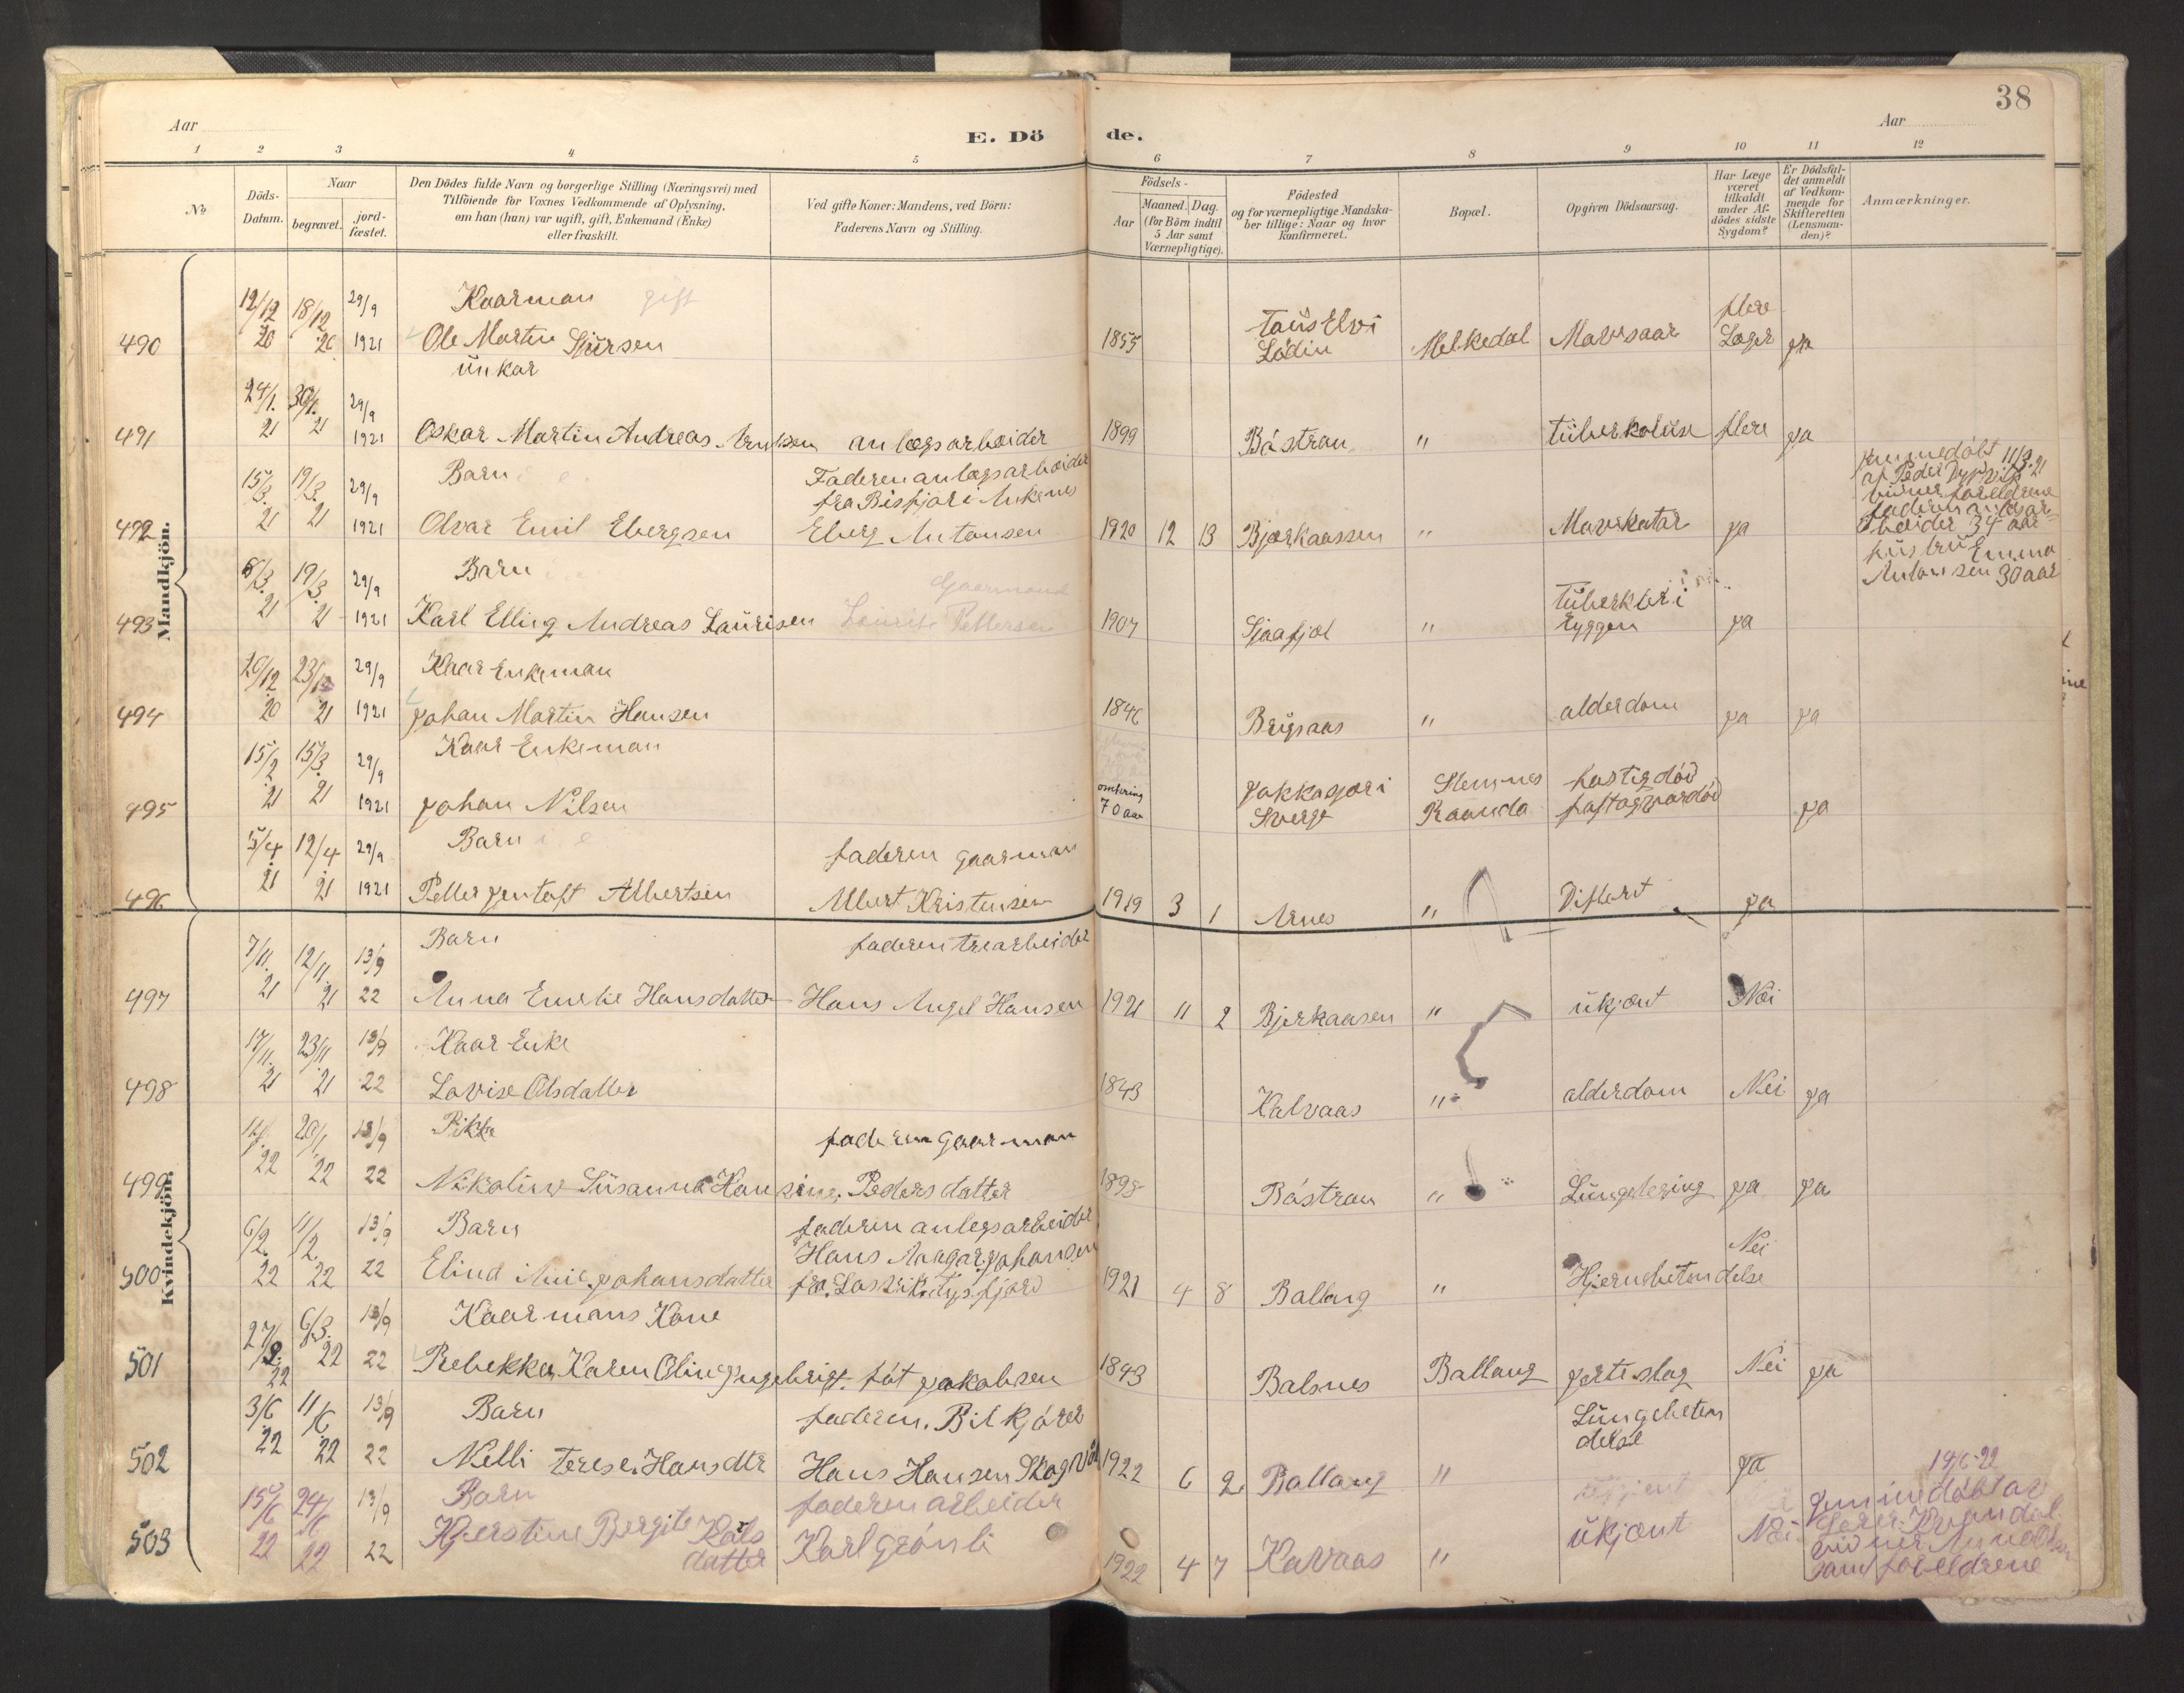 38
Aar
E. Dö
de.
Aar
1 2 3 4 5 6 7 8 9 10 11 12
No
Döds-Datum.
Naar
begravet.
jord-fæstet.
Den Dödes fulde Navn og borgerlige Stilling (Næringsvei) med
Tilföiende for Voxnes Vedkommende af Oplysning,
om han (hun) var ugift, gift, Enkemand (Enke)
eller fraskilt.
Ved gifte Koner: Mandens, ved Börn:
Faderens Navn og Stilling.
Födsels-
Aar
Maaned. Dag.
(for Börn indtil
5 Aar samt
Værnepligtige).
Födested
og for værnepligtige Mandska-
ber tillige: Naar og hvor
konfirmeret.
Bopæl.
Opgiven Dödsaarsag.
Har Læge
været
tilkaldt
under Af-
dödes sidste
Sygdom?
Er Dödsfal-
det anmeldt
af Vedkom-
mende for
Skifteretten
(Lensman-
den)?
Anmærkninger.
Mandkjön.
12/12 18/12 29/9 Kaarman gift flere
490 20 20 1921 Ole Martin Sjursen 1855 Lødin Melkedal Mavsaar Læger ja
unkar
24/1. 30/1. 29/9
491 21 21 1921 Oskar Martin Andreas anlegsarbeider 1899 Båstran " tüberkolüse flere ja
15/3. 19/3. 29/9 Barn Faderen anlegsarbeider
fra Bisfjor i Ankenes
492 21 21 1921 Olvar Emil Ebergsen Eberg Antonsen 1920 12 13 Bjørkaassen " Mavekatar ja
jemmedøbt 11/3.21
af Peder
foreldrene
faderen
beider 34 aar
hustru Emma
Antonsen 30 aar
8/3. 19/3. 29/9 Barn Gaarmand
493 21 21 1921 Karl Elling Andreas Laurisen Laurits Pettersen 1907 Sjaafjol " tüberkler i ryggen ja
20/12 23/12 29/9 Kaar Enkeman
494 20 21 1921 Johan Martin Hansen 1846 Brigsaas " alderdom ja ja
15/2. 15/3. 29/9 Kaar Enkeman
495 21 21 1921 Johan Nilsen omkring 70 aar Jokkasjær i Sverge Stemnes Raanda hastig død ja
5/4 12/4 29/9 Barn faderen gaarman
496 21 21 1921 Petter Jentoft Albertsen Albert Kristensen 1919 3 1 Arnes " Diflerit ja
Kvindekjön.
7/11. 12/11. 13/9 Barn faderen trearbeider
497 21 21 22 Anna Emelie Hansdatter Hans Angel Hansen 1921 11 2 Bjerkaasen " ükjent Nei
17/11. 23/11 13/9 Kaar Enke
498 21 21 22 Lovise Olsdatter 1843 Kalvaas " alderdom Nei ja
14/1. 20/1 13/9 Pikke faderen gaarman
499 22 22 22 Nikoline Susanna Hansine, Pedersdatter 1898 Båstran " ja ja
6/2. 11/2. 13/9 Barn faderen anlegsarbeider
Hans Aragar Johansen
500 22 22 22 Elind Johansdatter 1921 4 8 Ballang " Hjernebetendelse Nei
27/2. 6/3. 13/9 Kaarmans Kone
501 22 22 22 Rebekka Karen Oline Ingebrigt. føt Jakobsen 1843 Balsnes Ballang jerteslag Nei ja
3/6 11/6 13/9 Barn faderen. Bilkjører
502 22 22 22 Nelli Terese Hansdtr Hans Hansen 1922 6 2 Ballang " Lungebeten
delse ja
15/6 24/6 13/9 Barn faderen arbeider
503 22 22 22 Kjerstine Bergite Kals
datter Karl Grønli 1922 4 7 Kavaas " ükjent Nei
19/6-22
jemmedøbt av
Lærer Kvandal.
vidner
samt foreldrene